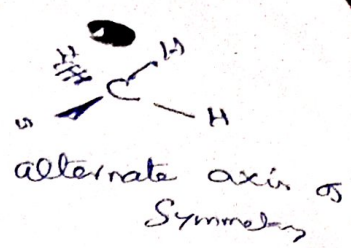 H
H
C
H
alternate axis of
Symmetry